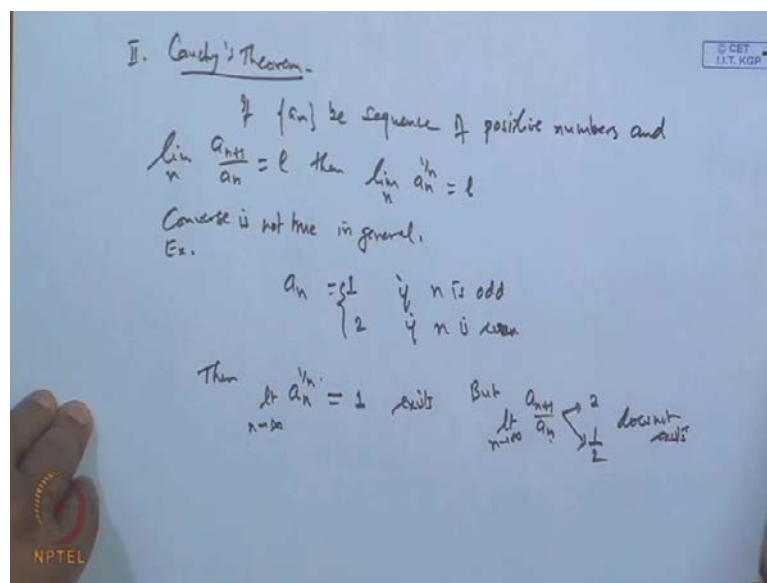 II. Cauchy's Theorem.
© CET
I.I.T. KGP
If {an} be sequence of positive numbers and
lim n an+1/an = l then lim n an^1/n = l
Converse is not true in general.
Ex.
an = { 1 if n is odd
2 if n is even
Then lt n→∞ an^1/n = 1 exists But lt n→∞ an+1/an → 2 does not exists
→ 1/2
NPTEL